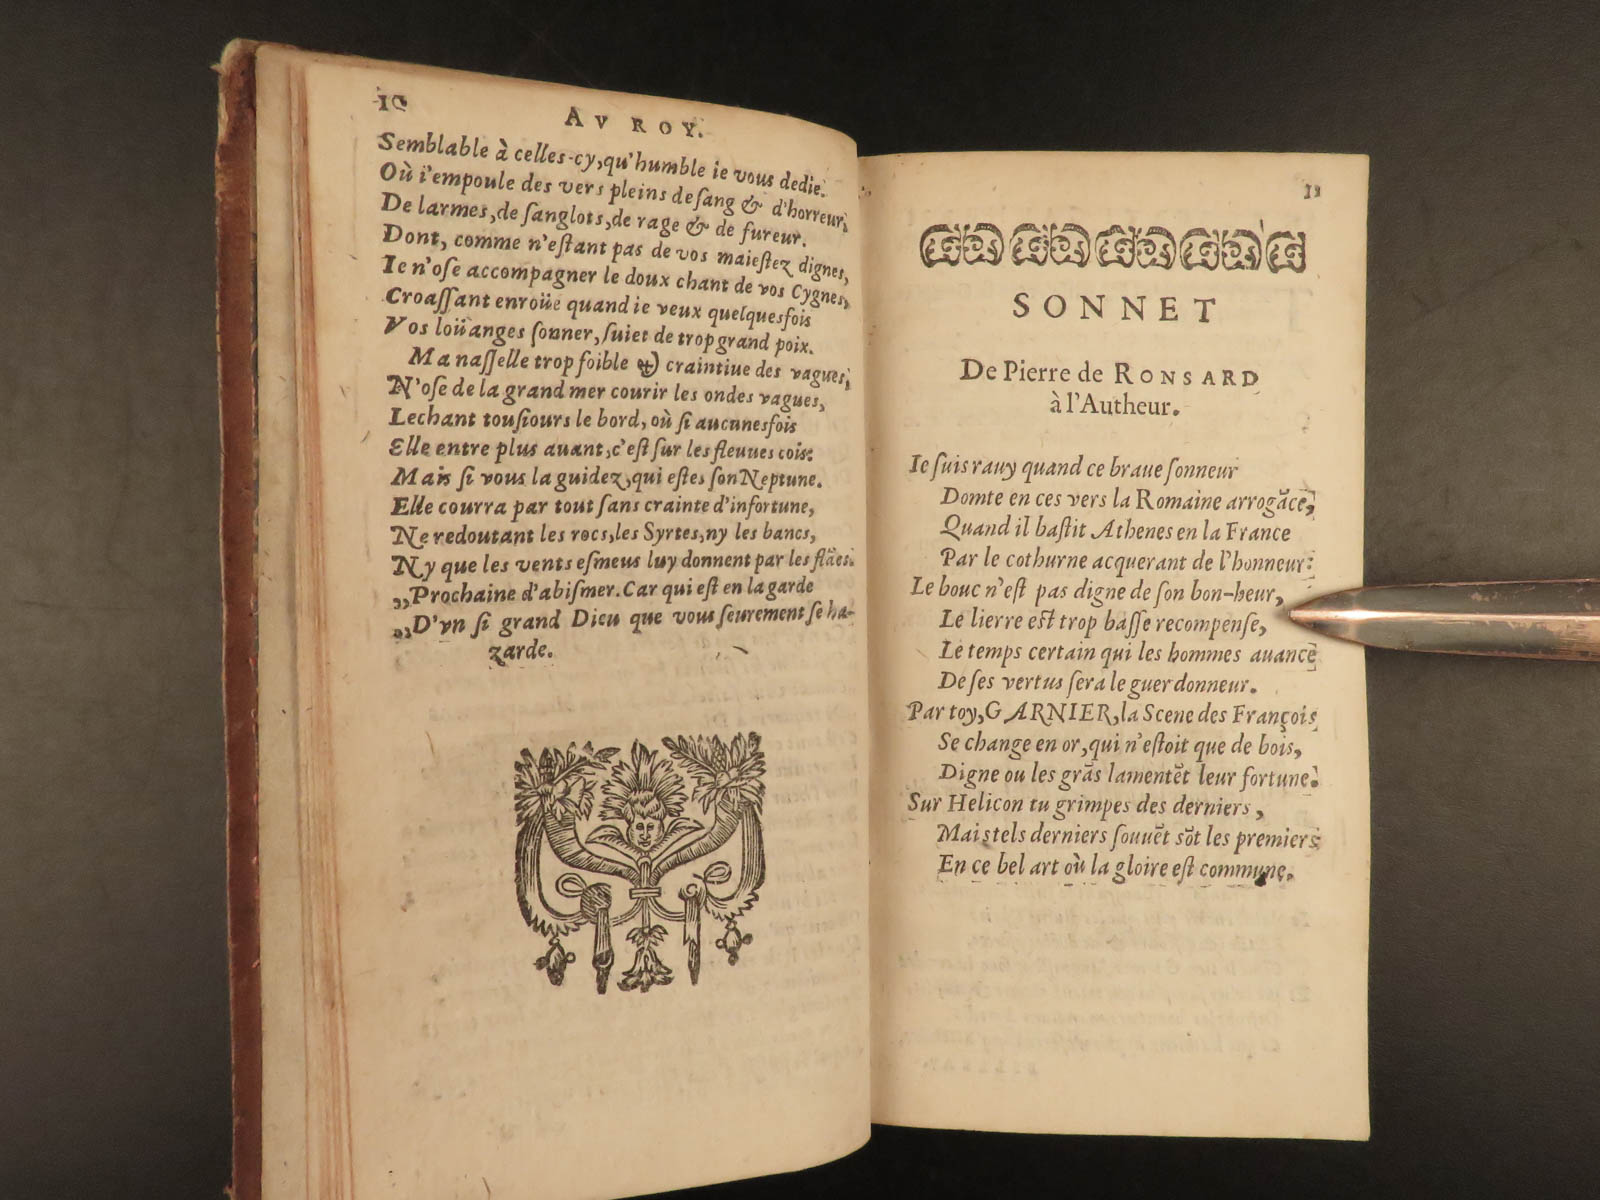 10
AV ROY.
Semblable à celles-cy, qu'humble ie vous dedie.
Où i'empoule des vers pleins de sang & d'horreur,
De larmes, de sanglots, de rage & de fureur.
Dont, comme n'estant pas de vos maiestez dignes,
Ie n'ose accompagner le doux chant de vos Cygnes,
Croassant enroüé quand ie veux quelquesfois
Vos loüanges sonner, suiet de trop grand poix.
Ma nasselle trop foible & craintiue des vagues,
N'ose de la grand mer courir les ondes vagues,
Lechant tousiours le bord, où si aucunesfois
Elle entre plus auant, c'est sur les fleuues cois:
Mais si vous la guidez, qui estes son Neptune.
Elle courra par tout sans crainte d'infortune,
Ne redoutant les rocs, les Syrtes, ny les bancs,
Ny que les vents esmeus luy donnent par les flãcs.
„Prochaine d'abismer. Car qui est en la garde
„D'vn si grand Dieu que vous seurement se ha-
zarde.
11
SONNET
De Pierre de RONSARD
à l'Autheur.
Ie suis rauy quand ce braue sonneur
Domte en ces vers la Romaine arrogãce,
Quand il bastit Athenes en la France
Par le cothurne acquerant de l'honneur:
Le bouc n'est pas digne de son bon-heur,
Le lierre est trop basse recompense,
Le temps certain qui les hommes auance
De ses vertus sera le guerdonneur.
Par toy, GARNIER, la Scene des François
Se change en or, qui n'estoit que de bois,
Digne ou les grãs lamentẽt leur fortune.
Sur Helicon tu grimpes des derniers,
Mais tels derniers souuẽt sõt les premiers
En ce bel art où la gloire est commune.